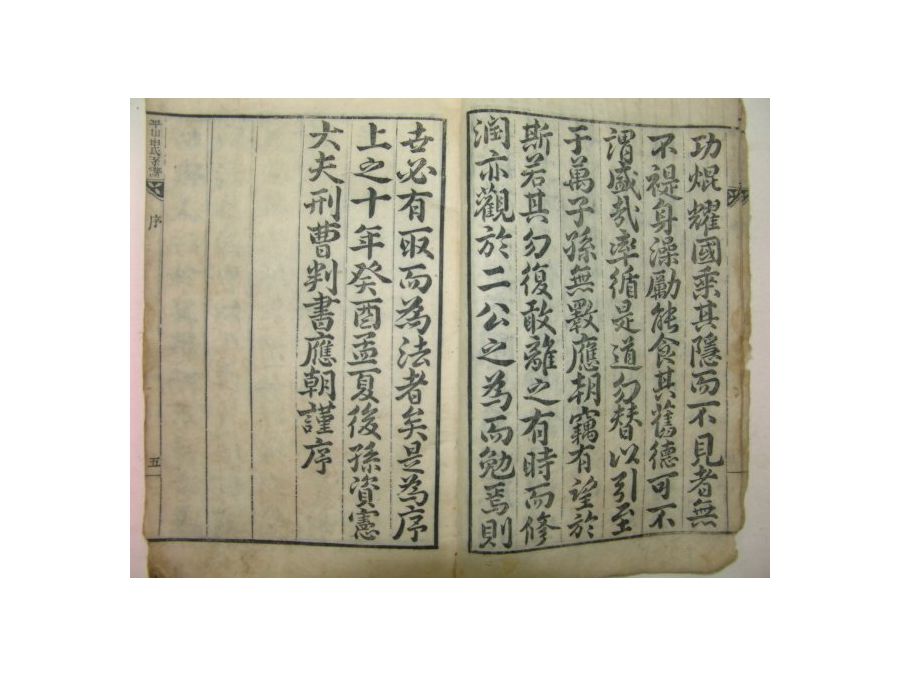 功焜耀國乘其隱而不見者無
不禔身澡勵能食其舊德可不
謂盛哉率循是道勿替以引至
于萬子孫無斁應朝竊有望於
斯若其勿復敢離之有時而修
潤亦觀於二公之為而勉焉則
世必有取而為法者矣是為序
上之十年癸酉孟夏後孫資憲
大夫刑曹判書應朝謹序
平山申氏系譜
序
五